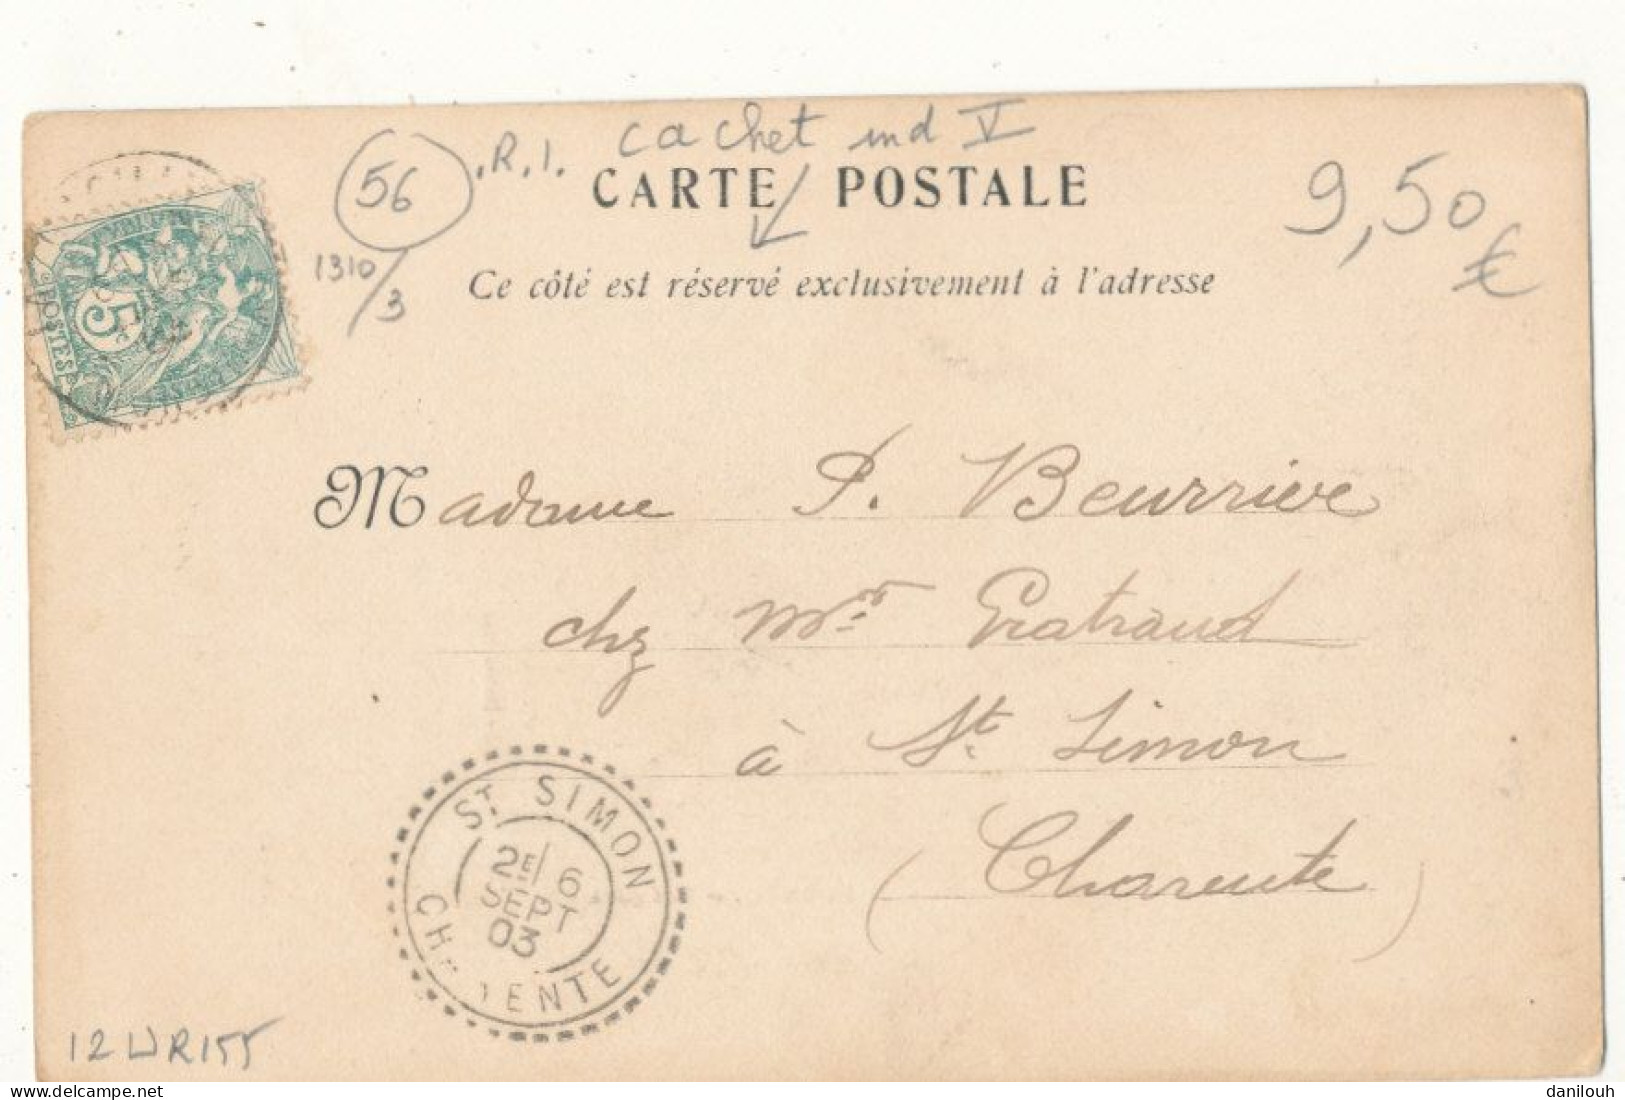 56
.R.I. Cachet ind V
CARTE POSTALE
9,50
€
1310/3
Ce côté est réservé exclusivement à l'adresse
5c
POSTES
Madame P. Beurrier
chz Mr
à St. Simon
(Charente)
ST SIMON
2E/ 6
SEPT
03
CH ENTE
12WR155
www.delcampe.net
danilouh